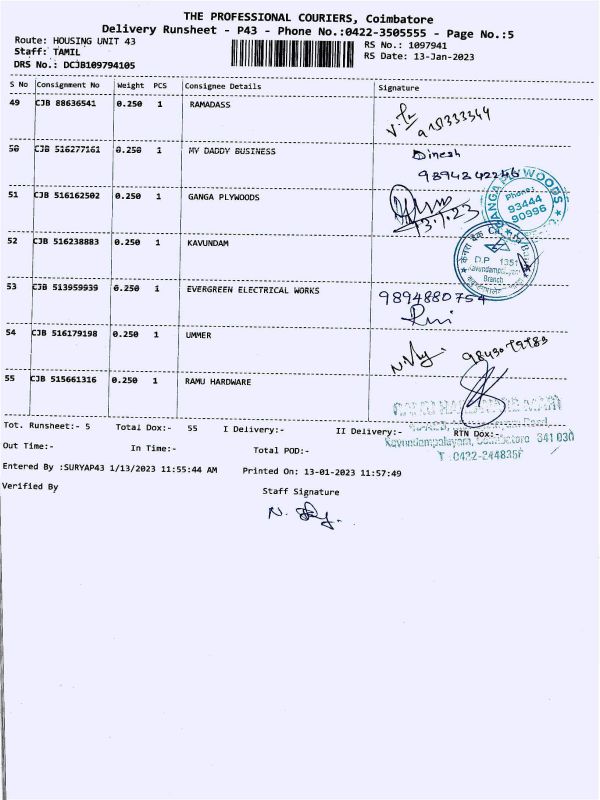 THE PROFESSIONAL COURIERS, Coimbatore
Delivery Runsheet - P43 - Phone No.:0422-3505555 - Page No.:5
Route: HOUSING UNIT 43
RS No.: 1097941
Staff: TAMIL
RS Date: 13-Jan-2023
DRS No.: DCJB109794105
S No Consignment No Weight PCS Consignee Details Signature
49 CJB 88636541 0.250 1 RAMADASS
50 CJB 516277161 0.250 1 MY DADDY BUSINESS Dinesh
9894842246
51 CJB 516162502 0.250 1 GANGA PLYWOODS
13.1.23
GANGA PLYWOODS
Phone:
93444
90996
52 CJB 516238883 0.250 1 KAVUNDAM
D.P 1351
Kavundampalayam
Branch
53 CJB 513959939 0.250 1 EVERGREEN ELECTRICAL WORKS 9894880754
54 CJB 516179198 0.250 1 UMMER
55 CJB 515661316 0.250 1 RAMU HARDWARE
Tot. Runsheet:- 5 Total Dox:- 55 I Delivery:- II Delivery:- RTN Dox:-
Kavundampalayam, Coimbatore 641 030
Out Time:- In Time:- Total POD:-
Entered By :SURYAP43 1/13/2023 11:55:44 AM Printed On: 13-01-2023 11:57:49
Verified By Staff Signature